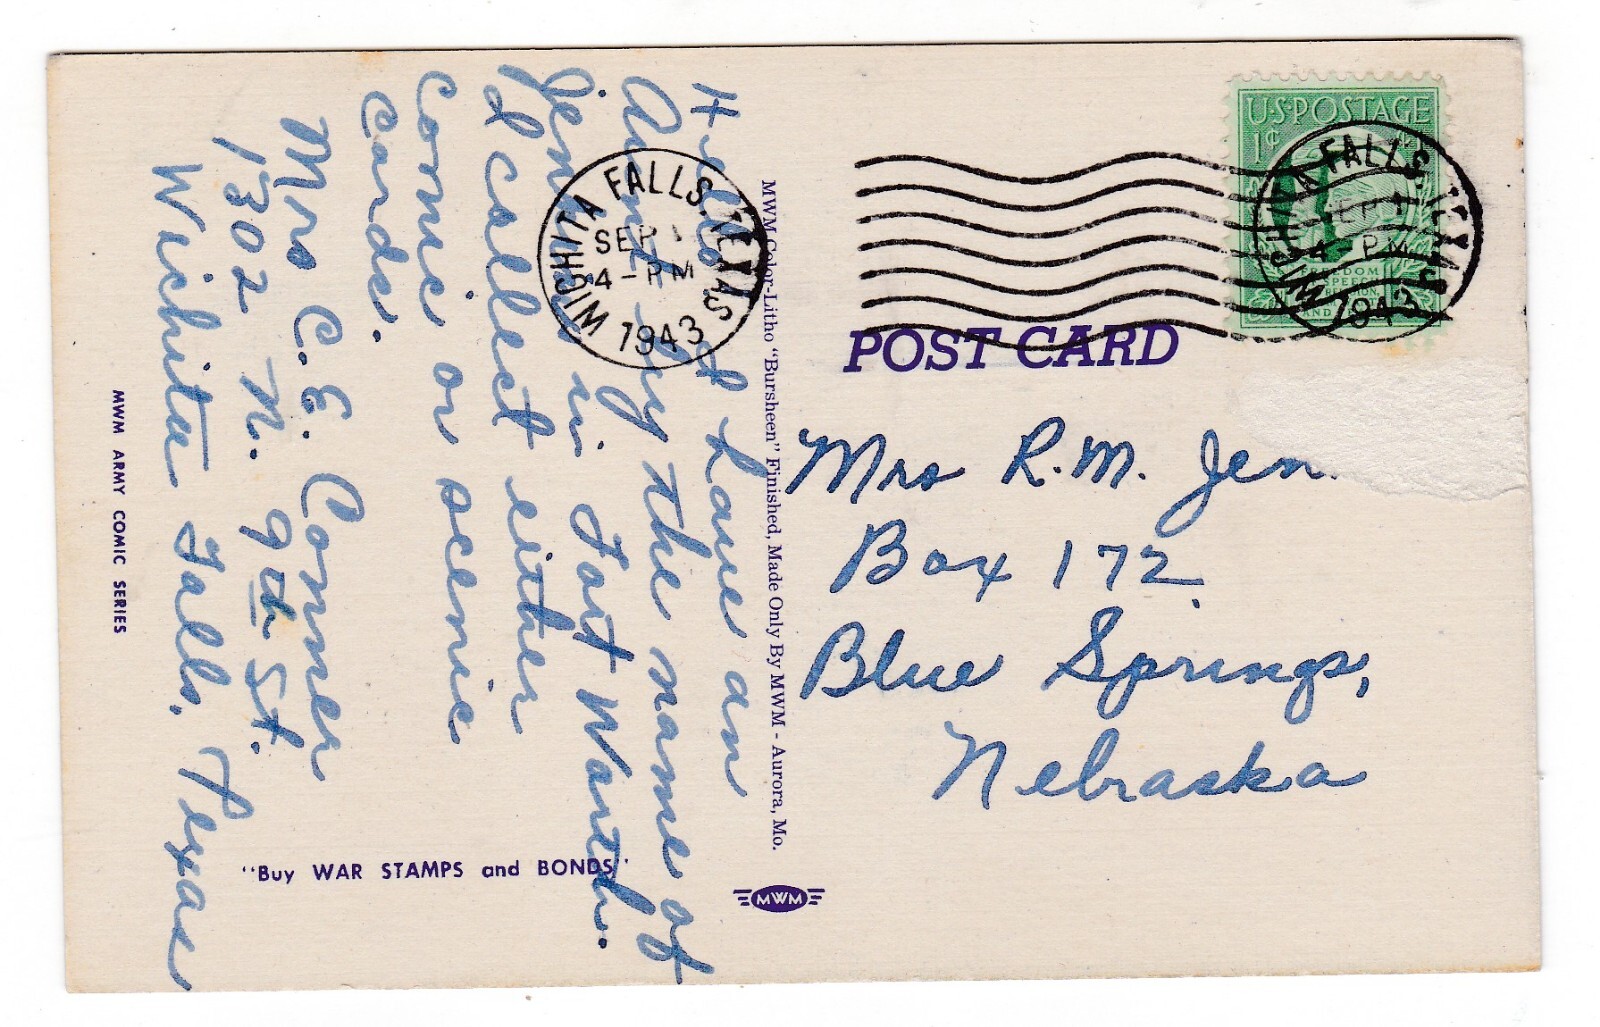 Hello I have an
Aunt by the name of
Jenkins in Fort Worth.
I collect either
comic or scenic
cards.
Mrs C. E. Conner
1302 N. 9th St.
Wichita Falls, Texas
MWM ARMY COMIC SERIES
"Buy WAR STAMPS and BONDS"
MWM Color-Litho "Bursheen" Finished, Made Only By MWM - Aurora, Mo.
MWM
WICHITA FALLS, TEXAS
SEP
4-PM
1943
U.S. POSTAGE
1¢
FREEDOM
AND
WICHITA FALLS, TEXAS
SEP
4-PM
1943
POST CARD
Mrs R. M. Jen
Box 172
Blue Springs,
Nebraska